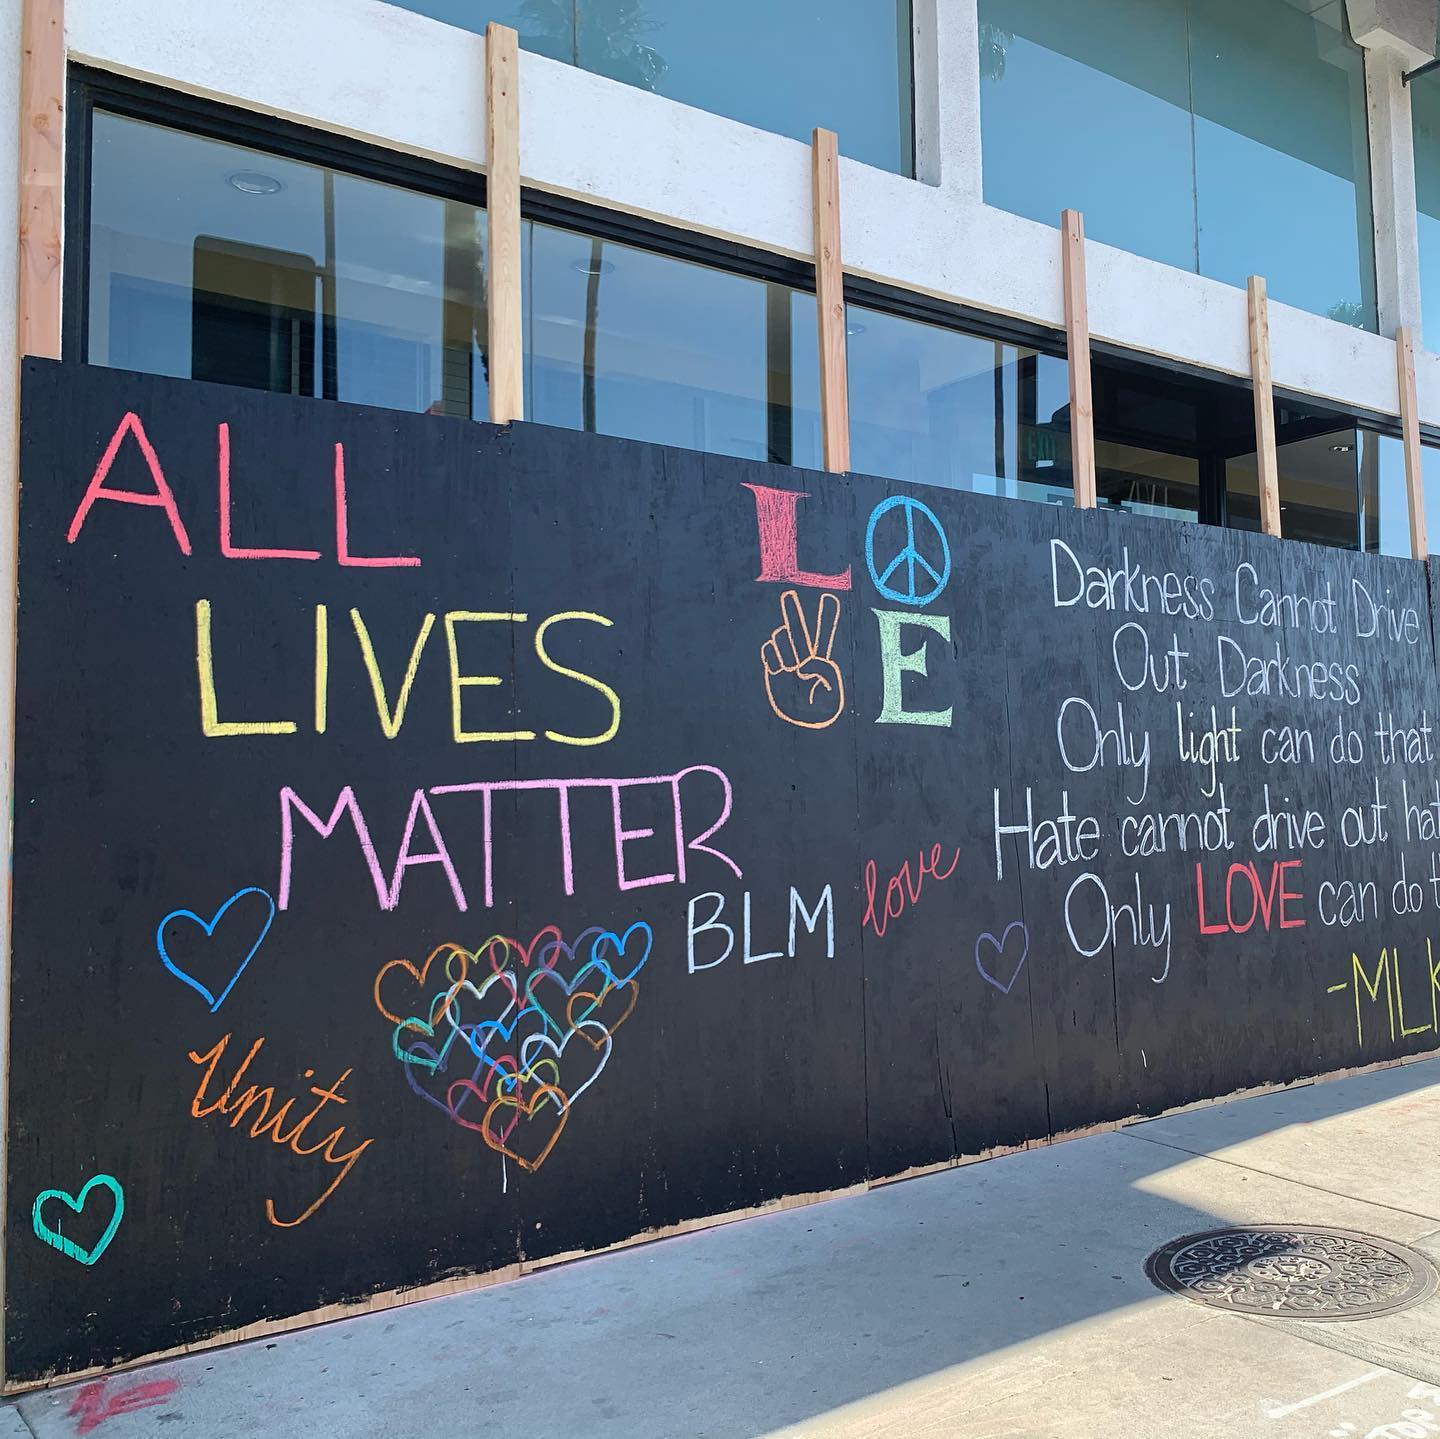 ALL
LIVES
MATTER
BLM
Unity
L
E
love
Darkness Cannot Drive
Out Darkness
Only light can do that
Hate cannot drive out hat
Only LOVE can do t
-MLK
EXIT